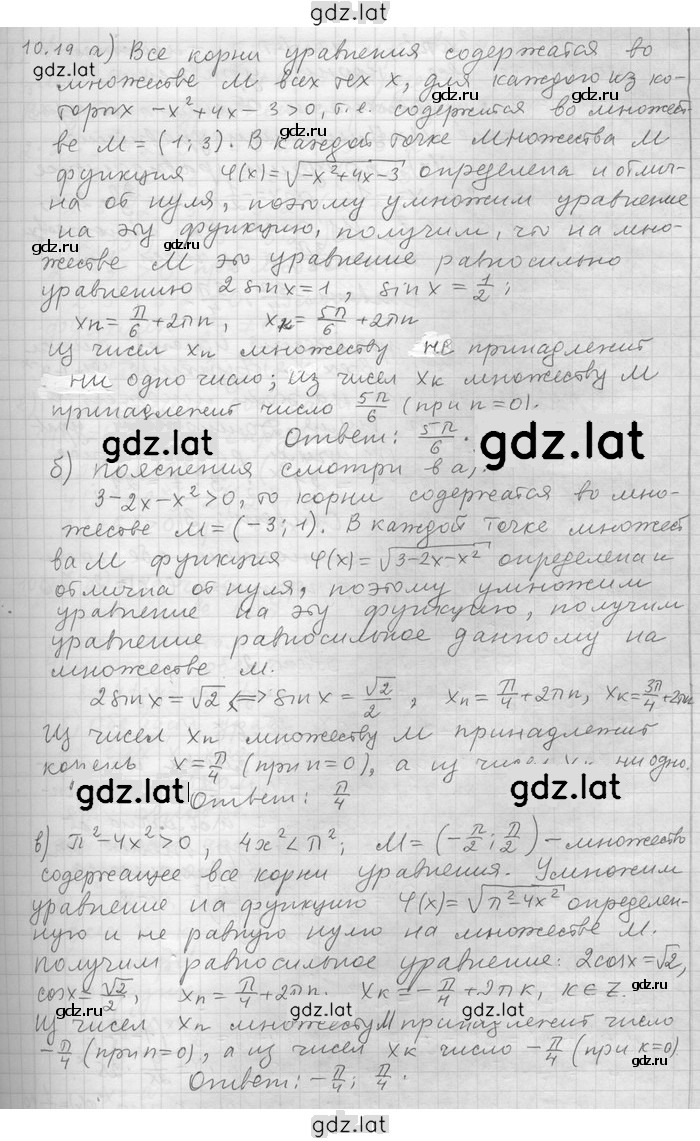 gdz.lat
10.19 а) Все корни уравнения содержатся во
множестве М всех тех х, для каждого из ко-
торых −x²+4x−3>0, т.е. содержится во множест-
ве М=(1; 3). В каждой точке множества М
функция φ(x)=√−x²+4x−3 определена и отлич-
на от нуля, поэтому умножим уравнение
на эту функцию, получим, что на мно-
жестве М это уравнение равносильно
уравнению 2 sin x=1, sin x = 1/2;
xn = π/6+2πn, xk = 5π/6+2πn
Из чисел xn множеству не принадлежит
ни одно число; из чисел xk множеству М
принадлежит число 5π/6 (при n=0).
Ответ: 5π/6.
б) пояснения смотри в а).
3−2x−x²>0, то корни содержатся во мно-
жестве М=(−3; 1). В каждой точке множест
ва М функция φ(x)=√3−2x−x² определена и
отлична от нуля, поэтому умножим
уравнение на эту функцию, получим
уравнение равносильное данному на
множестве М.
2 sin x = √2 <=> sin x = √2/2, xn = π/4+2πn, xk = 3π/4+2πn
Из чисел xn множеству М принадлежит
корень x = π/4 (при n=0), а из чисел ни одно.
Ответ: π/4
в) π²−4x²>0, 4x²<π²; М=(−π/2; π/2) − множество
содержащее все корни уравнения. Умножим
уравнение на функцию φ(x)=√π²−4x² определен-
ную и не равную нулю на множестве М.
получим равносильное уравнение: 2cos x=√2,
cos x=√2/2, xn = π/4+2πn. xk = −π/4+2πk, k∈Z.
Из чисел xn множеству М принадлежит число
−π/4 (при n=0), а из чисел xk число −π/4 (при k=0)
Ответ: −π/4; π/4.
gdz.lat